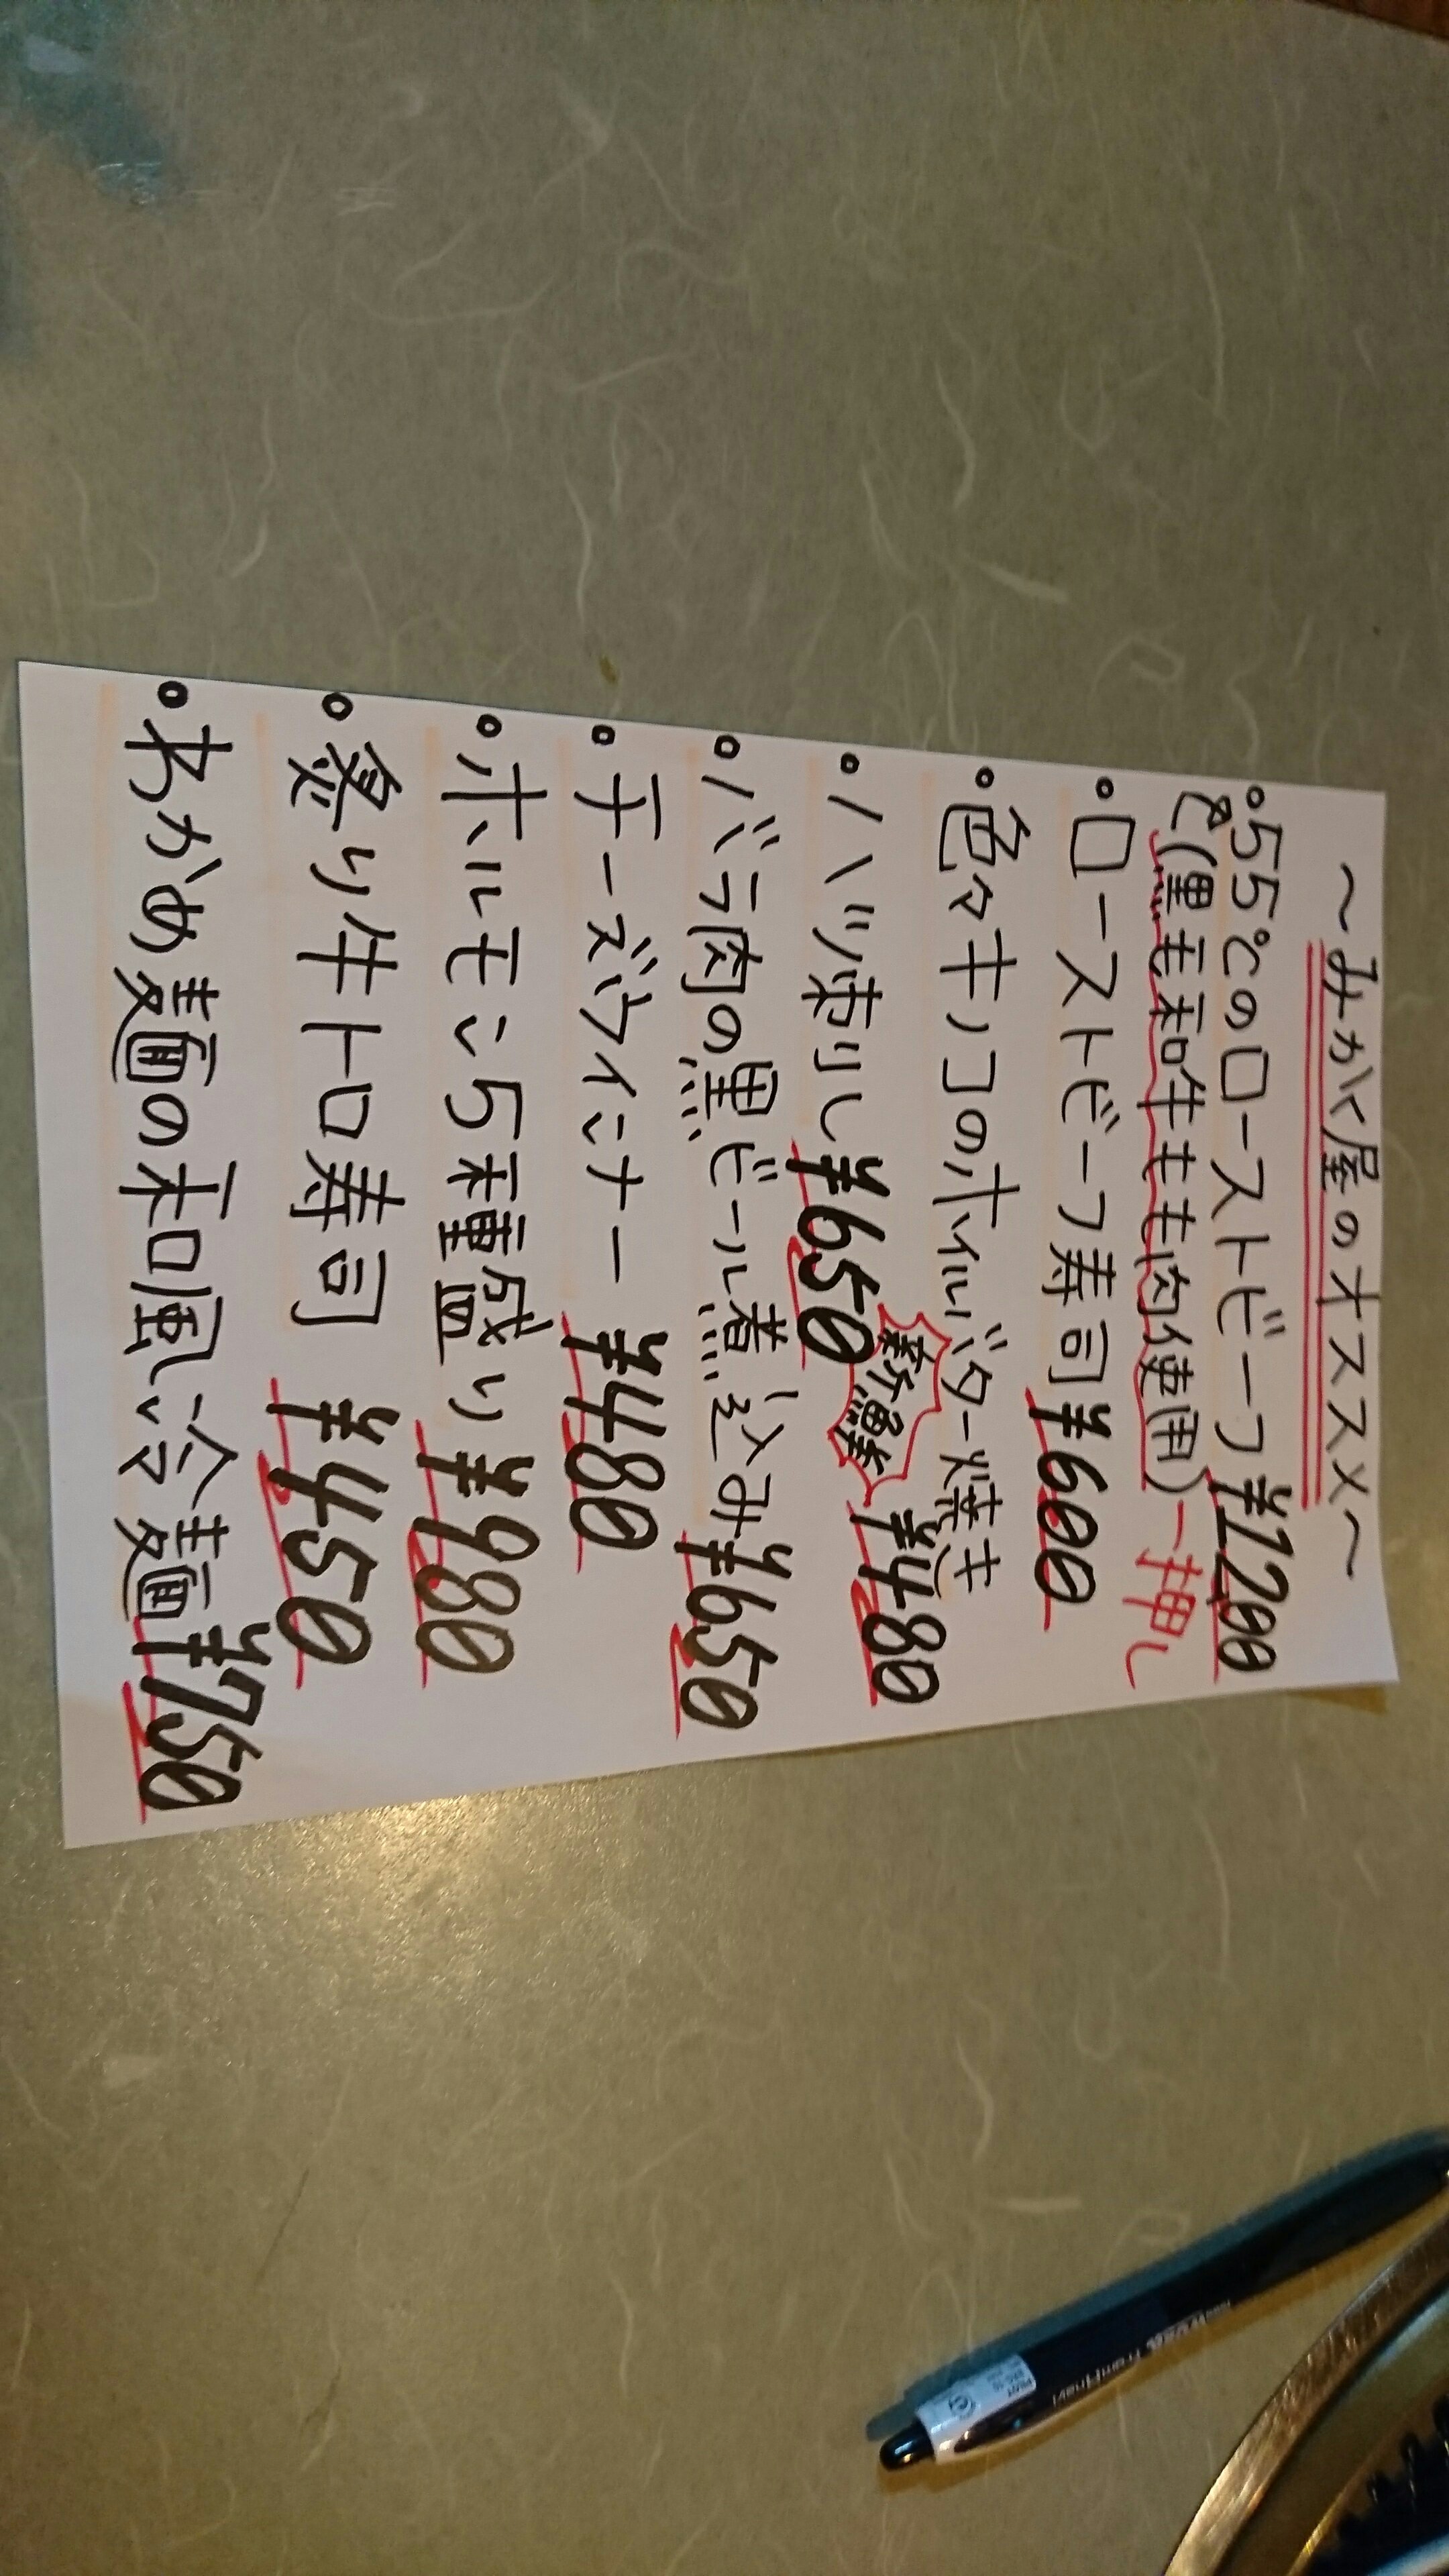 〜みがく屋のオススメ〜
・55℃のローストビーフ ¥1200
(黒毛和牛もも肉使用) 一押し
・ローストビーフ寿司 ¥600
・色々キノコのホイルバター焼き ¥480
・ハツ刺し ¥650 新鮮
・バラ肉の黒ビール煮込み ¥650
・チーズウインナー ¥480
・ホルモン5種盛り ¥980
・炙り牛トロ寿司 ¥450
・わかめ麺の和風冷麺 ¥750
PILOT